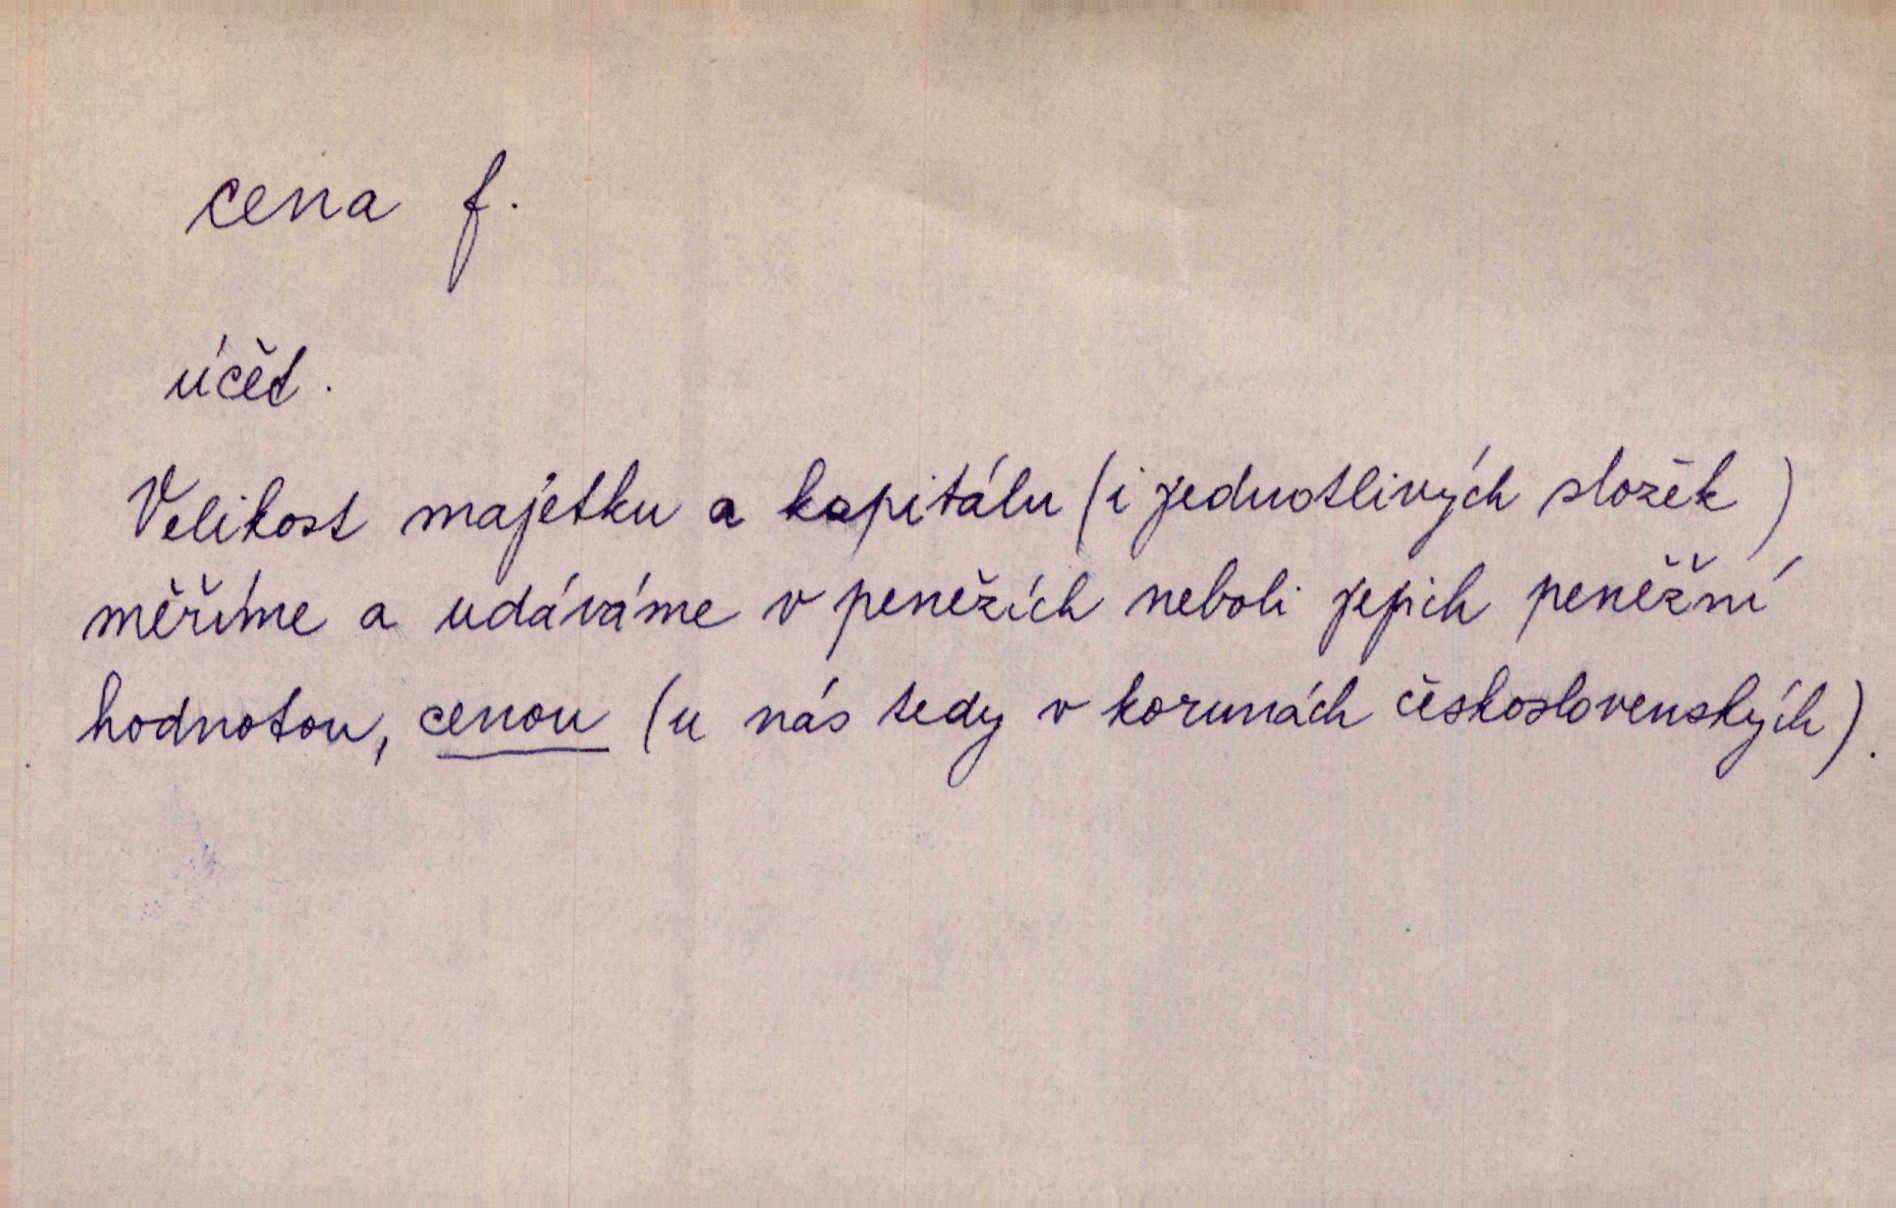 cena f.
účět.
Velikost majetku a kapitálu (i jednotlivých složek)
měříme a udáváme v penězích neboli jejich peněžní
hodnotou, cenou (u nás tedy v korunách československých).